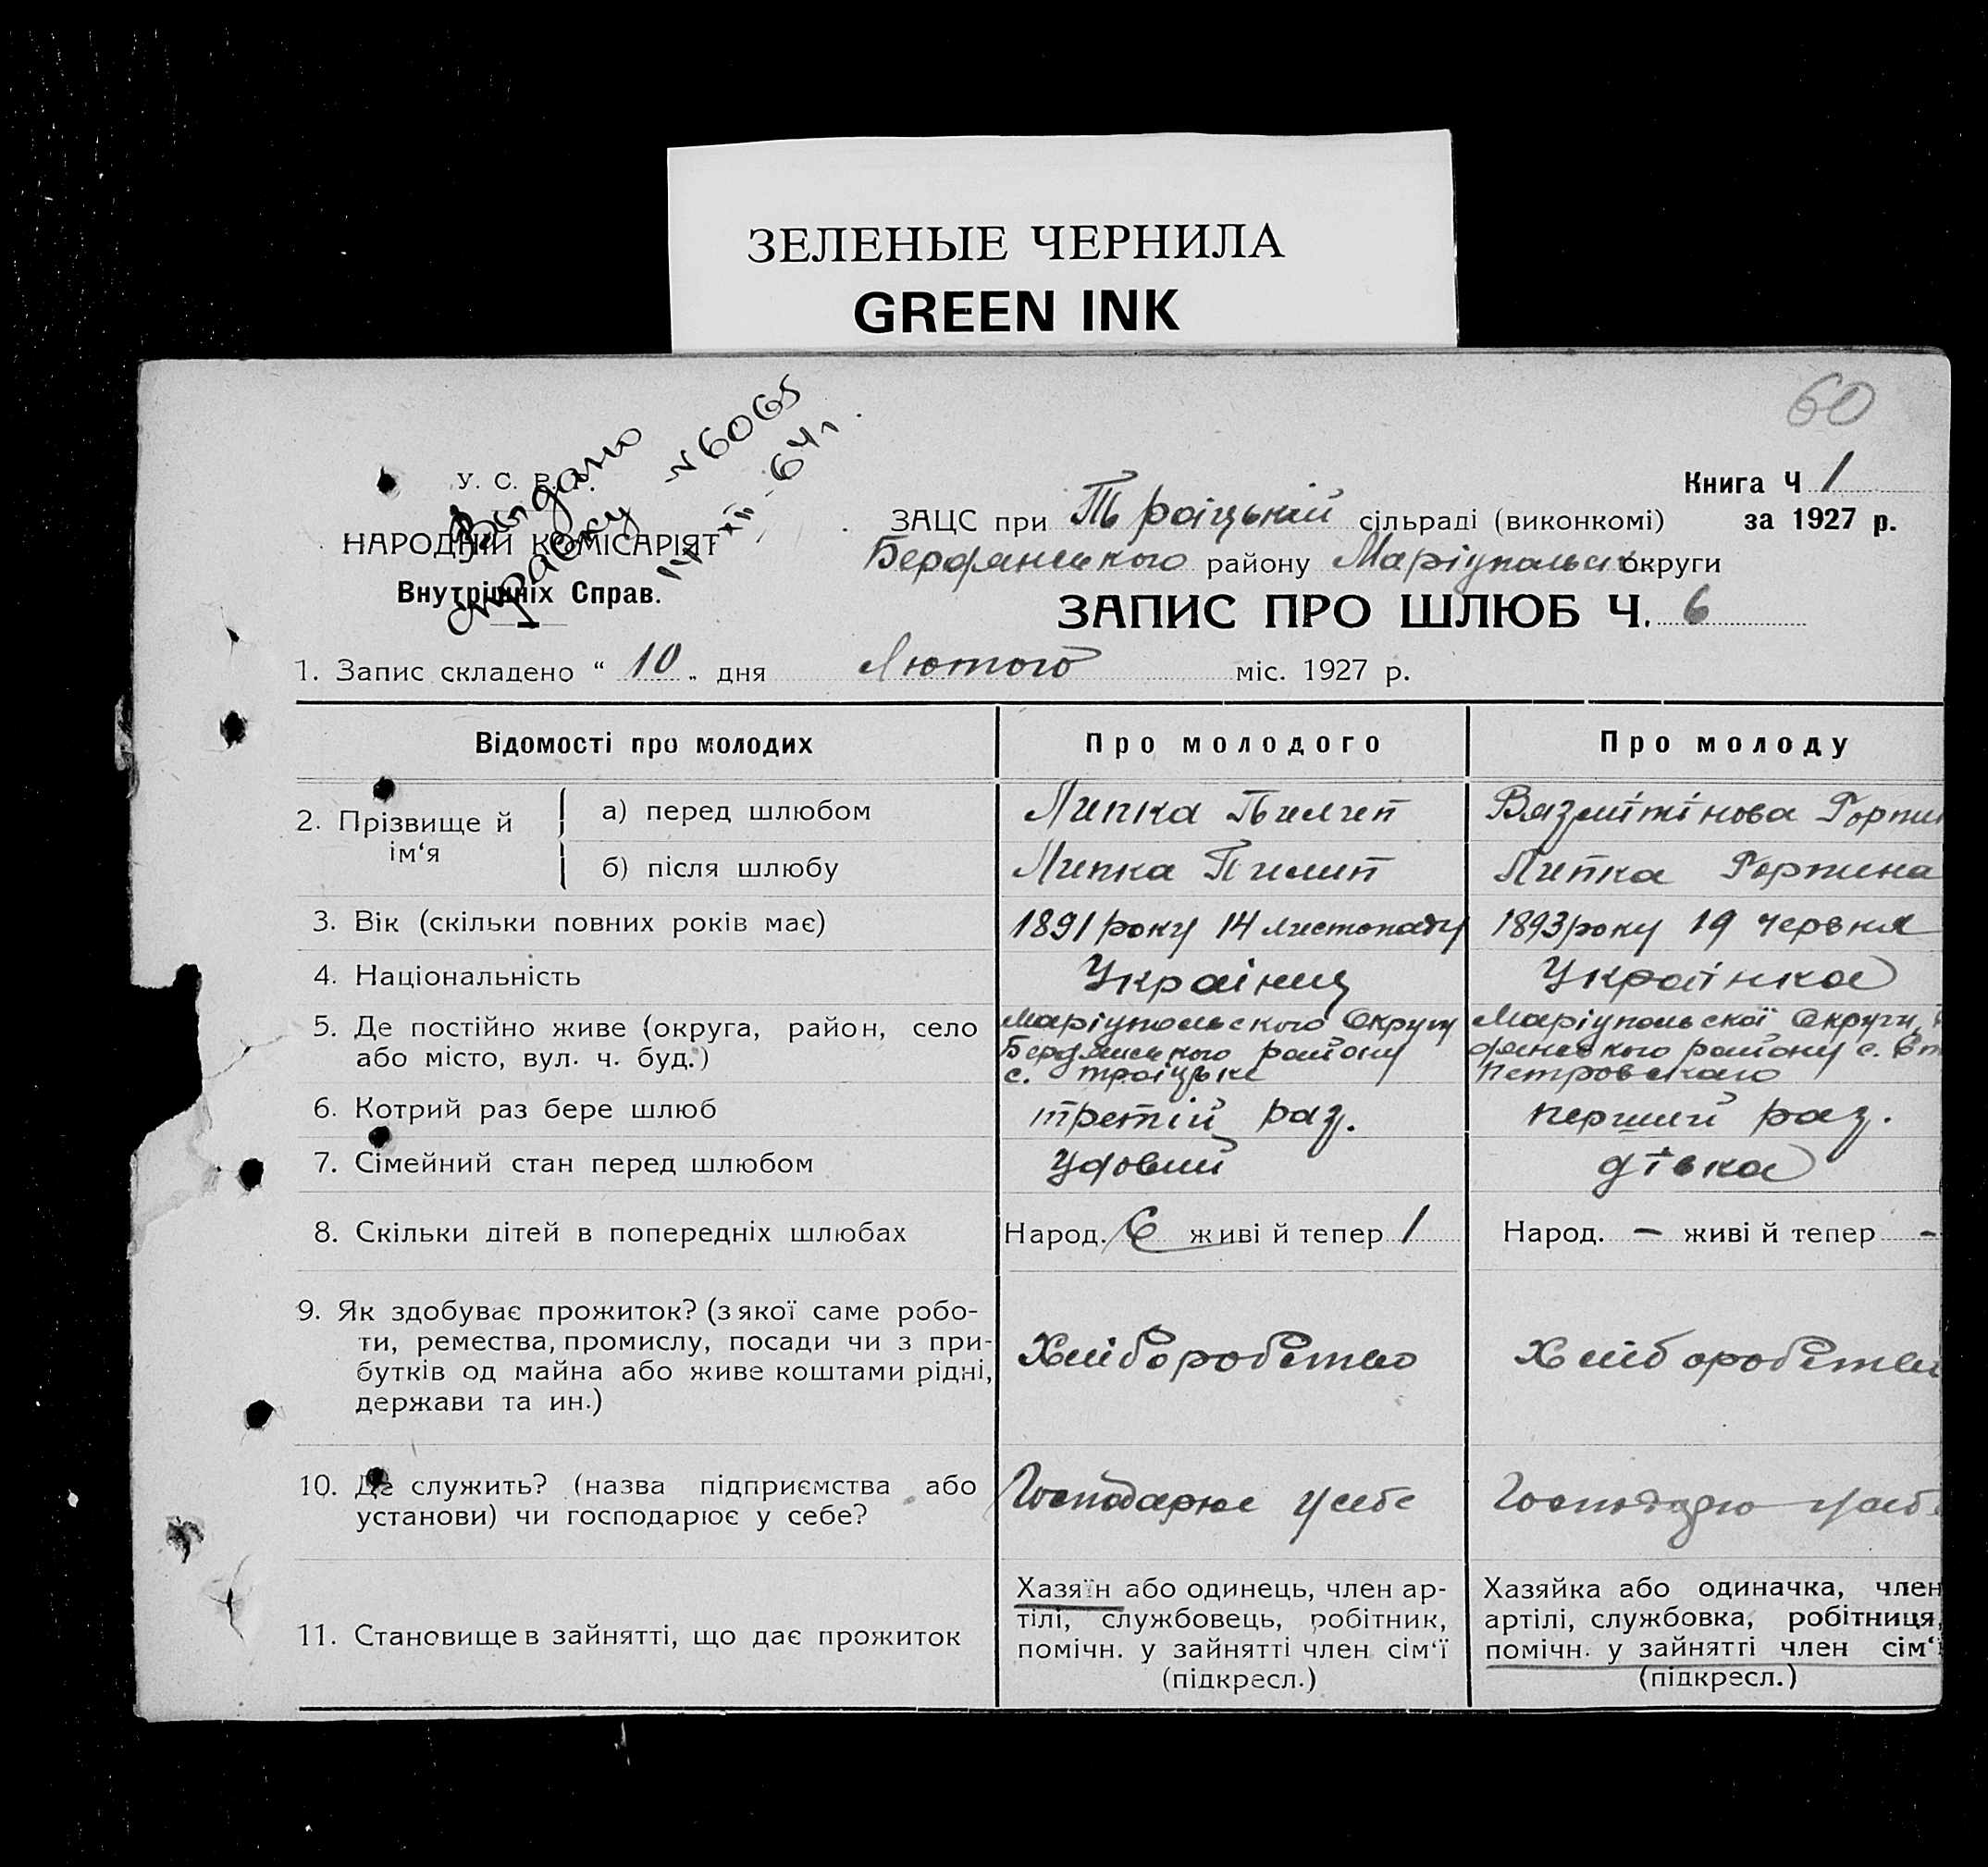 ЗЕЛЕНЫЕ ЧЕРНИЛА
GREEN INK
60
У. С. Р. Р.
НАРОДНІЙ КОМІСАРІЯТ
Внутрішніх Справ.
Выдано
справку
№6065
64г.
Книга Ч 1
ЗАЦС при Троіцькій сільраді (виконкомі) за 1927 р.
Бердянського району Маріупольськ округи
ЗАПИС ПРО ШЛЮБ Ч. 6
1. Запис складено “ 10 „ дня Лютого міс. 1927 р.
Відомості про молодих Про молодого Про молоду
2. Прізвище й ім‘я
а) перед шлюбом Липка Пилип Вязмітінова Горпи
б) після шлюбу Липка Пилип Липка Горпина
3. Вік (скільки повних років має) 1891 року 14 листопаду 1893 року 19 червня
4. Національність Украінець Украінка
5. Де постійно живе (округа, район, село або місто, вул. ч. буд.)
Маріупольського Округу
Бердянського району
с. Троіцьке
Маріупольскої Округи
дянського району с.
Петровского
6. Котрий раз бере шлюб третій раз. перший раз.
7. Сімейний стан перед шлюбом Удовий дівка
8. Скільки дітей в попередніх шлюбах Народ. 6 живі й тепер 1 Народ. – живі й тепер –
9. Як здобуває прожиток? (з якої саме робо-
ти, ремества, промислу, посади чи з при-
бутків од майна або живе коштами рідні,
держави та ин.)
Хліборобство Хліборобств
10. Де служить? (назва підприємства або
установи) чи господарює у себе?
Господарює у себе Господарю у себ
11. Становище в зайнятті, що дає прожиток
Хазяїн або одинець, член ар-
тілі, службовець, робітник,
помічн. у зайнятті член сім‘ї
(підкресл.)
Хазяйка або одиначка, член
артілі, службовка, робітниця,
помічн. у зайнятті член сім‘ї
(підкресл.)